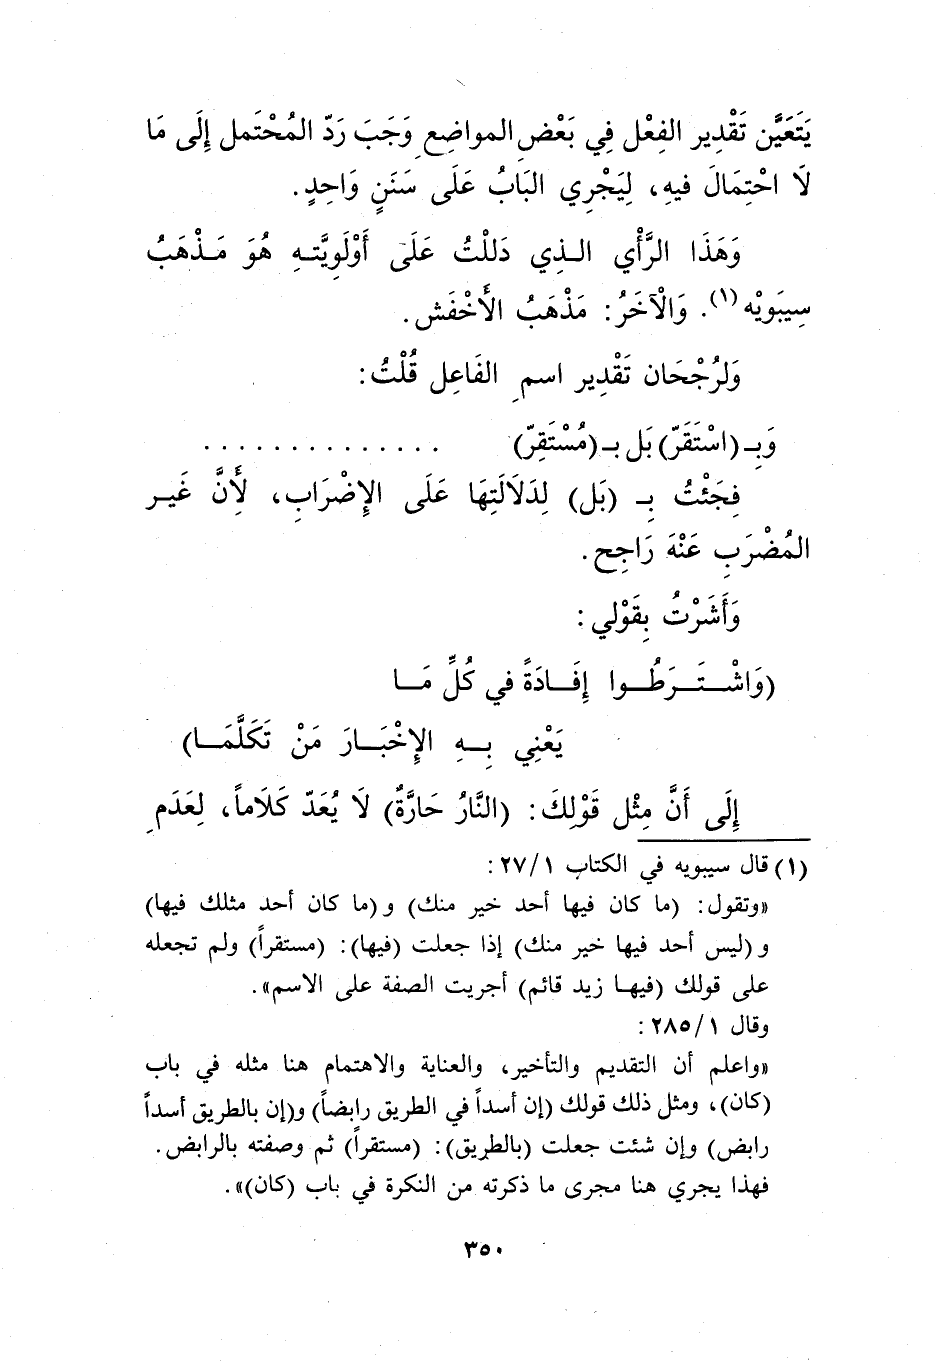 يَتَعَيَّن تَقْدِير الفِعْل فِي بَعْضِ المواضِعِ وَجَبَ رَدّ المُحْتَمل إِلَى مَا
لَا احْتِمَالَ فيهِ، لِيَجْرِي البَابُ عَلَى سَنَنٍ وَاحِدٍ.
وَهَذَا الرَّأْي الـذِي دَللْتُ عَلَى أَوْلَوِيَّتـهِ هُوَ مَـذْهَبُ
سِيبَويْه(١). وَالْآخَرُ: مَذْهَبُ الأَخْفَش.
وَلرُجْحَان تَقْدِير اسمِ الفَاعِل قُلْتُ:
وَبِـ (اسْتَقَرّ) بَل بـ (مُسْتَقِرّ) . . . . . . . . . . . . . .
فَجَئْتُ بِـ (بَل) لِدَلَالَتِهَا عَلَى الإِضْرَابِ، لأَنَّ غَيـر
المُضْرَبِ عَنْهَ رَاجِح.
وَأَشَرْتُ بِقَوْلي:
(وَاشْـتَـرَطُـوا إِفَـادَةً في كُلِّ مَـا
يَعْنِي بِـهِ الإِخْبَـارَ مَنْ تَكَلَّمَـا)
إِلَى أَنَّ مِثْل قَوْلِكَ: (النَّارُ حَارَّةٌ) لَا يُعَدّ كَلَاماً، لِعَدَمِ
(١) قال سيبويه في الكتاب ٢٧/١:
«وتقول: (ما كان فيها أحد خير منك) و (ما كان أحد مثلك فيها)
و (ليس أحد فيها خير منك) إذا جعلت (فيها): (مستقراً) ولم تجعله
على قولك (فيهـا زيد قائم) أجريت الصفة على الاسم».
وقال ٢٨٥/١:
«واعلم أن التقديم والتأخير، والعناية والاهتمام هنا مثله في باب
(كان)، ومثل ذلك قولك (إن أسداً في الطريق رابضاً) و(إن بالطريق أسداً
رابض) وإن شئت جعلت (بالطريق): (مستقراً) ثم وصفته بالرابض.
فهذا يجري هنا مجرى ما ذكرته من النكرة في باب (كان)».
٣٥٠